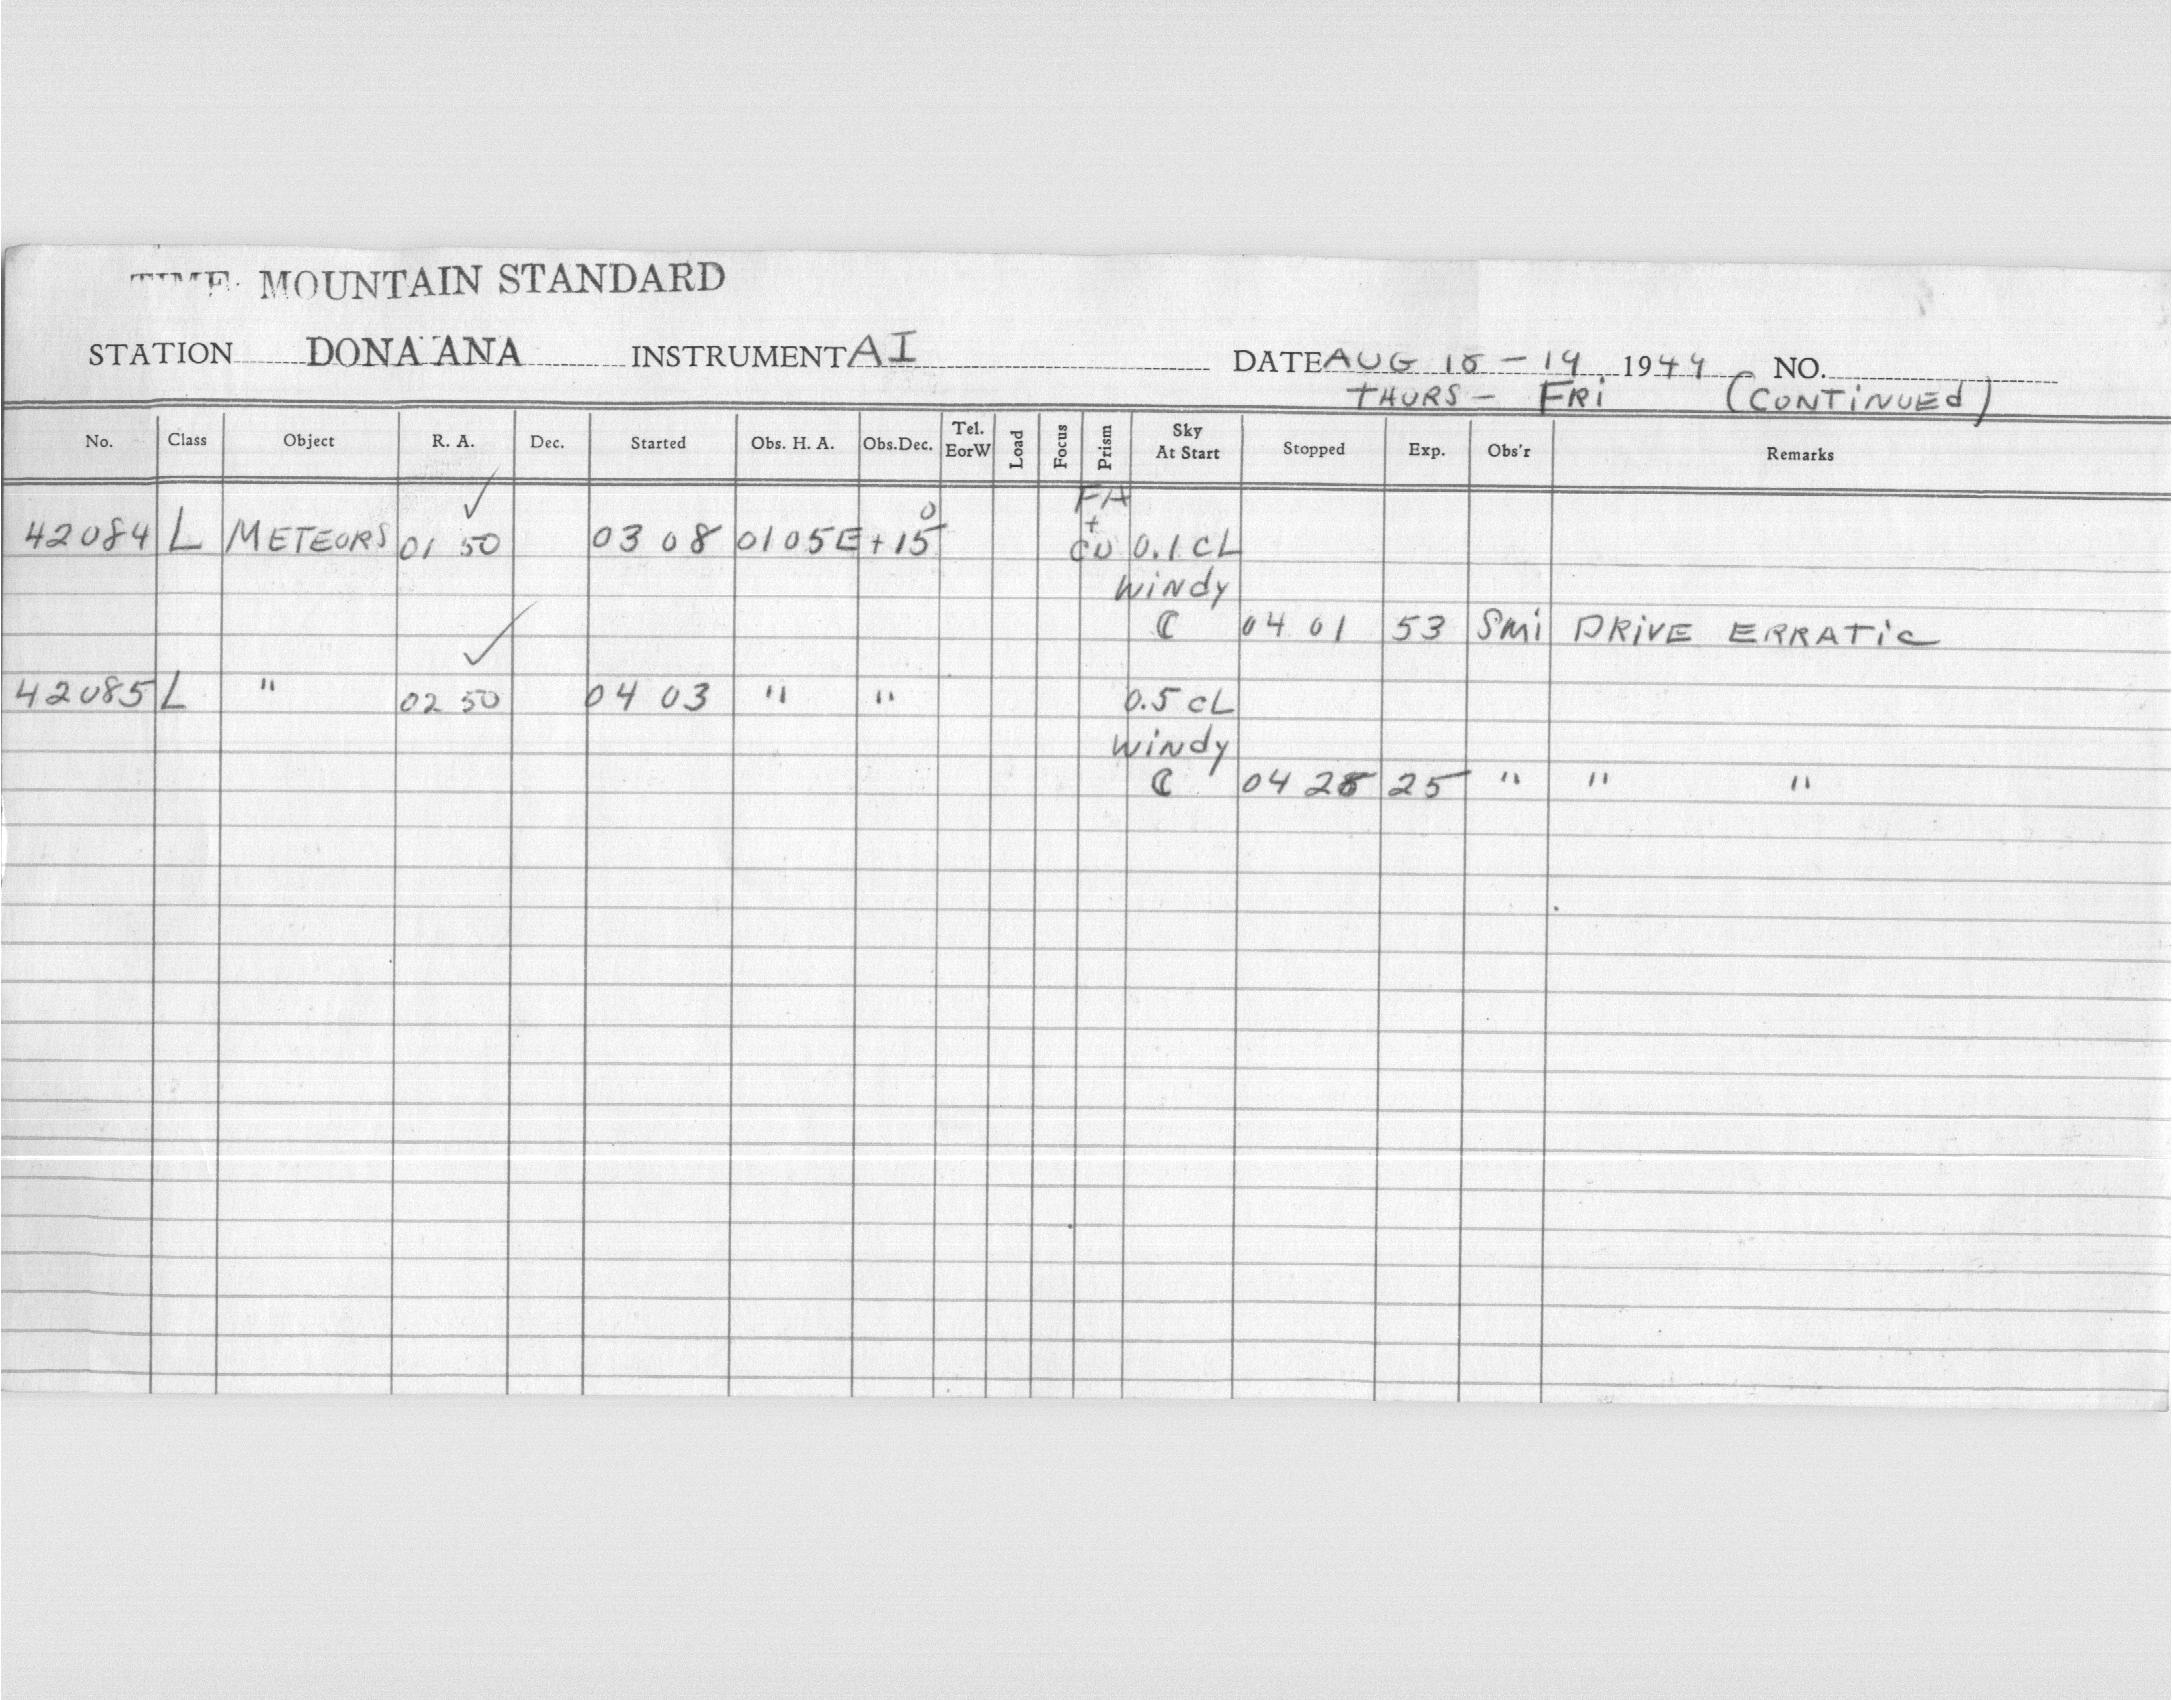 TIME: MOUNTAIN STANDARD
STATION DONA ANA INSTRUMENT AI DATE AUG 18 - 19 1949 NO.
THURS - FRI (CONTINUED)
No. Class Object R. A. Dec. Started Obs. H. A. Obs.Dec. Tel. EorW Load Focus Prism Sky At Start Stopped Exp. Obs'r Remarks
FA
+
42084 L METEORS 01 50 ✓ 03 08 0105E +15° CU 0.1 CL
WINDY
☾ 04 01 53 SMI DRIVE ERRATIC
42085 L " 02 50 ✓ 04 03 " " 0.5 CL
WINDY
☾ 04 28 25 " " "